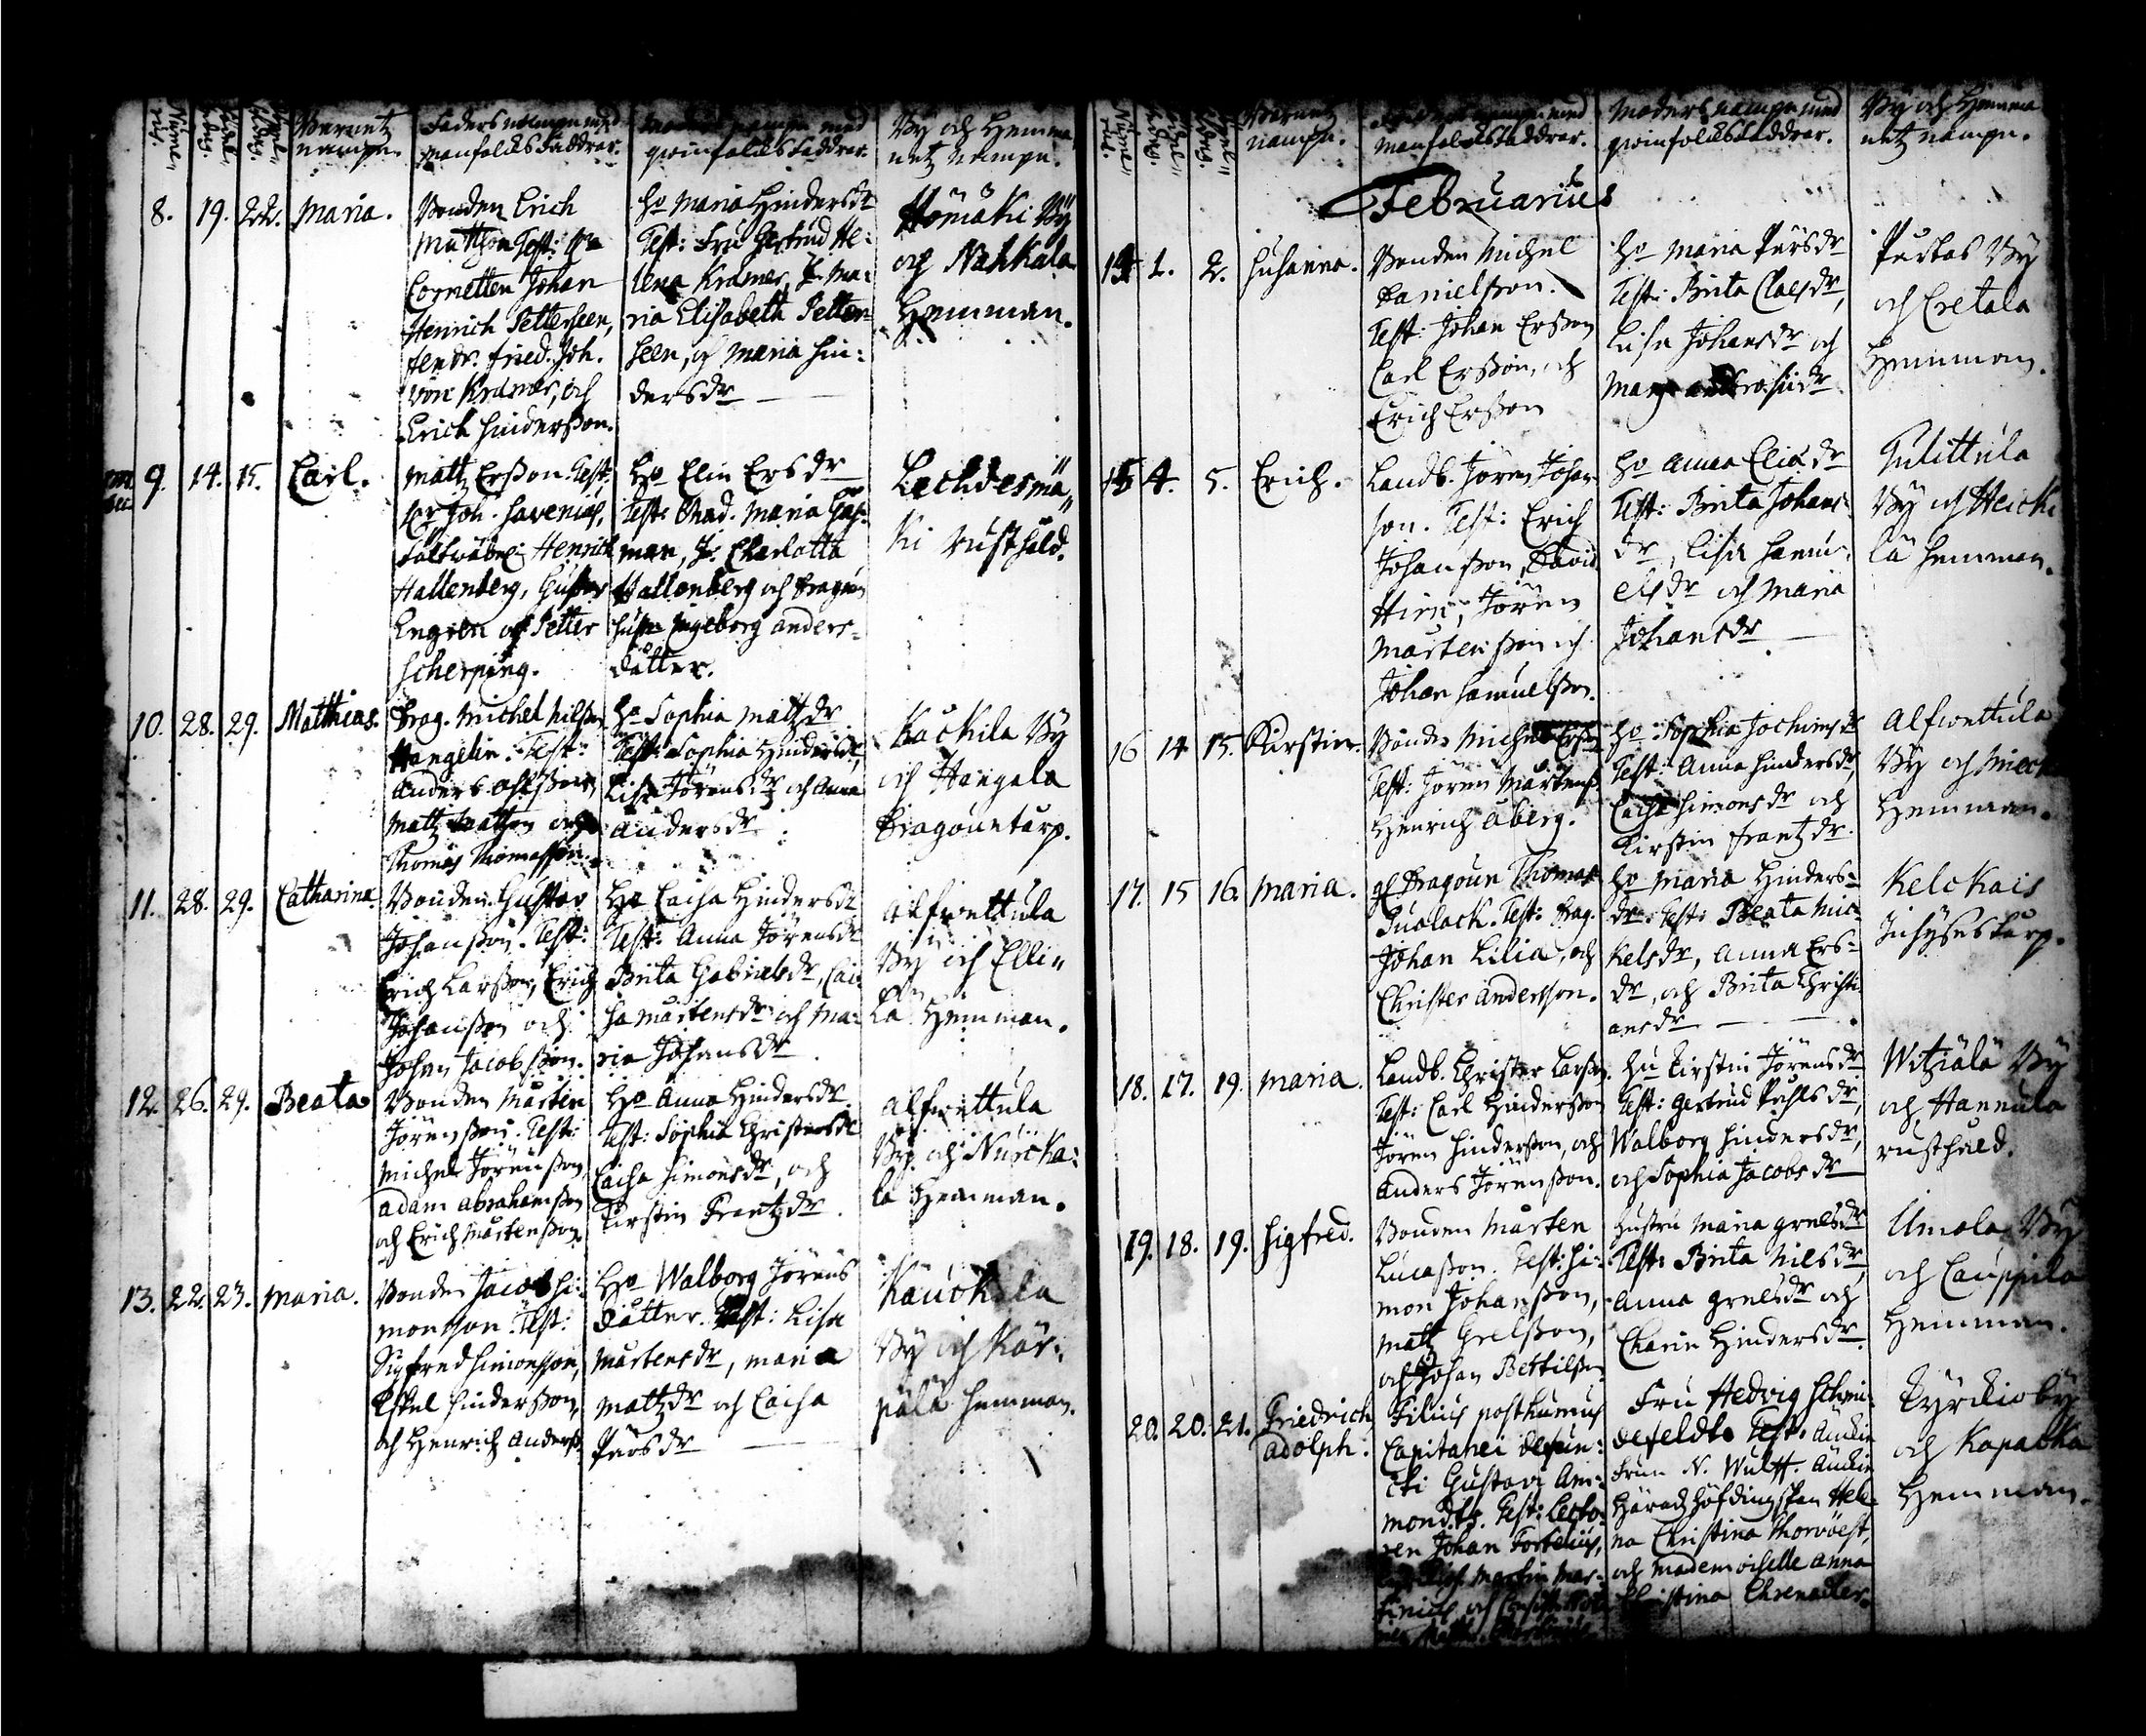 Barnetz
nampn.
Faders nampn med
manfolcksfaddrar.
qwinfolcksfaddrar.
By och Hemma
netz nampn.
8. 19. 22. Maria.
Bonden Erich
Mattson Test: Hr
Cornetten Johan
Henrich Petterseen,
Fendr. Fried. Joh.
von Kræmer, och
Erich Hindersson.
Ho Maria Hindersdr
Test: Fru Gertrud He:
lena Kræmer, J. Ma:
ria Elisabeth Petter
seen, och Maria Hin:
dersdr
Hömäki By
och Nahkala
Hemman.
9. 14. 15. Carl.
Matz Ersson. Test:
Hr Joh. Savenius,
Henrich
Hallenberg, Gustav
Engren och Petter
Scherping.
Ho Elin Ersdr
Test: Mad. Maria
man, J. Charlotta
Hallenberg och Dragoun
hust. Ingeborg Anders-
dåtter.
Lechdesmä„
ki Rusthåld.
10. 28. 29. Matthias.
Drag. Michel Nilsson
Hangelin. Test:
Anders
Matz Mattson och
Thomas Thomasson.
Ho Sophia Matzdr
Test: Sophia Hindersdr,
Lisa Jörensdr och Anna
Andersdr
Kackila By
och Hangala
Dragountorp.
11. 28. 29. Catharina.
Bonden Gustav
Johansson. Test:
Erich Larsson, Erich
Johansson och
Johan Jacobsson.
Ho Caisa Hindersdr
Test: Anna Jörensdr
Brita Gabrielsdr, Cai:
sa Mårtensdr och Ma:
ria Johansdr
Alfwettula
By och Elli„
lä Hemman.
12. 26. 29. Beata
Bonden Mårten
Jörensson. Test:
Michel Jörensson
Adam Abrahamsson
och Erich Mårtensson.
Ho Anna Hindersdr.
Test: Sophia Christersdr
Caisa Simonsdr, och
Kirstin Frantzdr.
Alfwettula
By och Nurcka:
la Hemman.
13. 22. 23. Maria.
Bonden Jacob Si:
monsson. Test:
Sigfred Simonsson,
Eskel Hindersson,
och Henrich Anderss.
Ho Walborg Jörens
dåtter. Test: Lisa
Mårtensdr, Maria
Matzdr och Caisa
Pärsdr
Kauckala
By och Kör:
pälä Hemman.
Barnetz
nampn.
manfolcksfaddrar.
Moders nampn med
qwinfolcksfaddrar.
By och Hemma
netz nampn.
Februarius
1. 2. Susanna.
Bonden Michel
Danielsson.
Test: Johan Ersson
Carl Ersson, och
Erich Ersson
Ho Maria Pärsdr
Test: Brita Claesdr,
Lisa Johansdr och
Pustas By
och Eretala
Hemman.
15 4. 5. Erich.
Landb. Jören Johan
son. Test: Erich
Johansson, David
Hirn, Jören
Mårtensson och
Johan Samuelsson.
Ho Anna Eliædr
Test: Brita Johans
dr, Lisa Samu:
elsdr och Maria
Johansdr
Tulittula
By och Heicki
lä Hemman.
16 14 15. Kirstin.
Bonden Michel Ersson
Test: Jören Mårtenss.
Henrich Åberg.
Ho Sophia Jochimsdr
Test: Anna Hindersdr,
Caisa Simonsdr och
Kirstin Frantzdr.
Alfwettula
By och
Hemman.
17. 15 16. Maria.
gl. Dragoun Thomas
Puolack. Test: Drag.
Johan Lilia, och
Christer Andersson.
Ho Maria Hinders-
dr. Test: Beata Mic
kelsdr, Anna Ers-
dr, och Brita Christi
ansdr
Kelckais
Inhyses torp.
18. 17. 19. Maria.
Landb. Christer Larsson.
Test: Carl Hindersson
Jören Hindersson, och
Anders Jörensson.
Hu Kirstin Jörensdr
Test: Gertrud Påhlsdr,
Walborg Hindersdr,
och Sophia Jacobsdr
Witziälä By
och Hannula
rusthåld.
19. 18. 19. Sigfred.
Bonden Mårten
Lucasson. Test: Si:
mon Johansson,
Matz Grelsson,
och Johan Bertilsson.
Hustru Maria Grelsdr
Test: Brita Nilsdr,
Anna Grelsdr och
Charin Hindersdr.
Umola By
och Cauppila
Hemman.
20. 20. 21. Friedrich
Adolph.
Filius posthumus
Capitanei defun:
cti Gustavi Am:
mondts. Test: Lecto:
ren Johan Fortelius,
Martin Mar:
tinius och
Fru Hedvig Schmi:
defeldt. Test: Änkie
Frun N. Wulff. Änkie
Häradzhöfdingskan Hele
na Christina Thorwöest,
och Mademoiselle Anna
Christina Ehrenadler.
Kyrckioby
och Kapacka
Hemman.